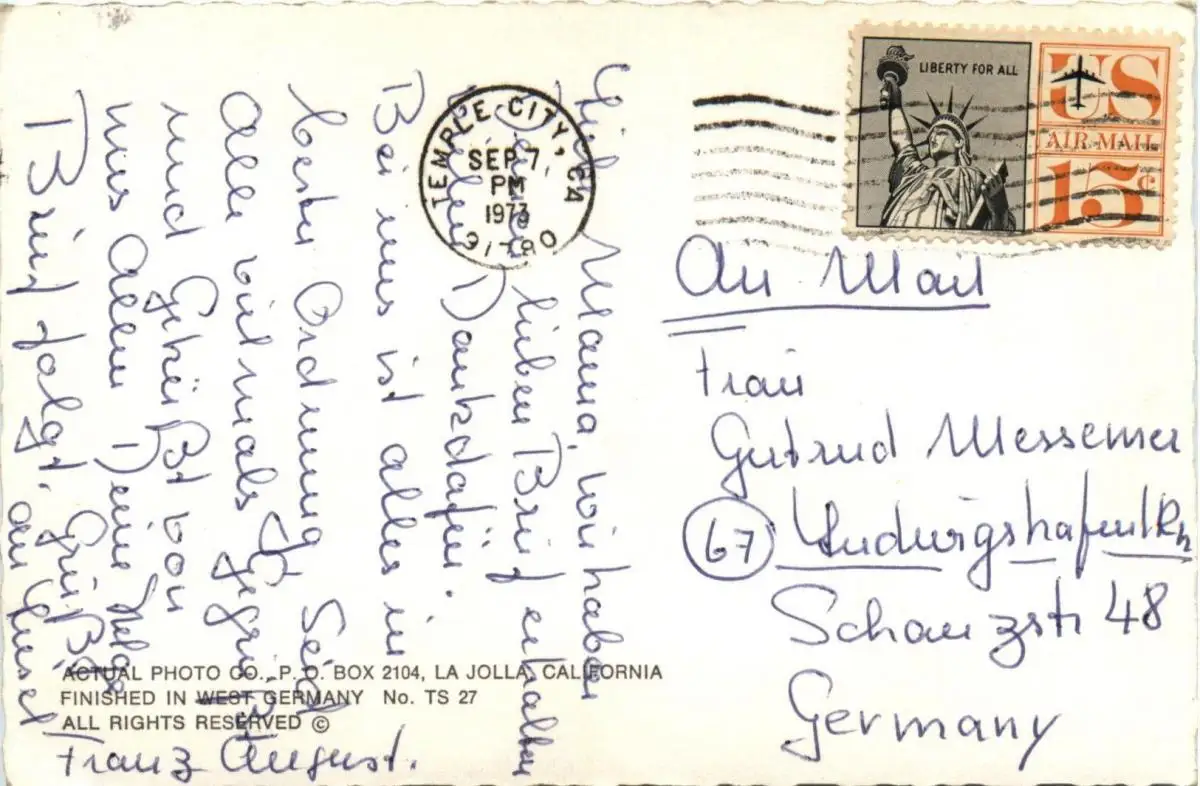 Liebe Mama, wir haben
Deinen lieben Brief erhalten
Vielen Dank dafür.
Bei uns ist alles in
bester Ordnung Seid
alle vielmals gegrüßt
und geküßt von
uns allen Deine
Brief folgt. Grüße
an Liesel
Franz August.
TEMPLE CITY, CA
SEP 7,
PM
1973
91780
LIBERTY FOR ALL
US
AIR MAIL
15¢
Air Mail
Frau
Gertrud Messemer
67 Ludwigshafen/Rh
Schanzstr 48
Germany
ACTUAL PHOTO CO., P. O. BOX 2104, LA JOLLA, CALIFORNIA
FINISHED IN WEST GERMANY No. TS 27
ALL RIGHTS RESERVED ©